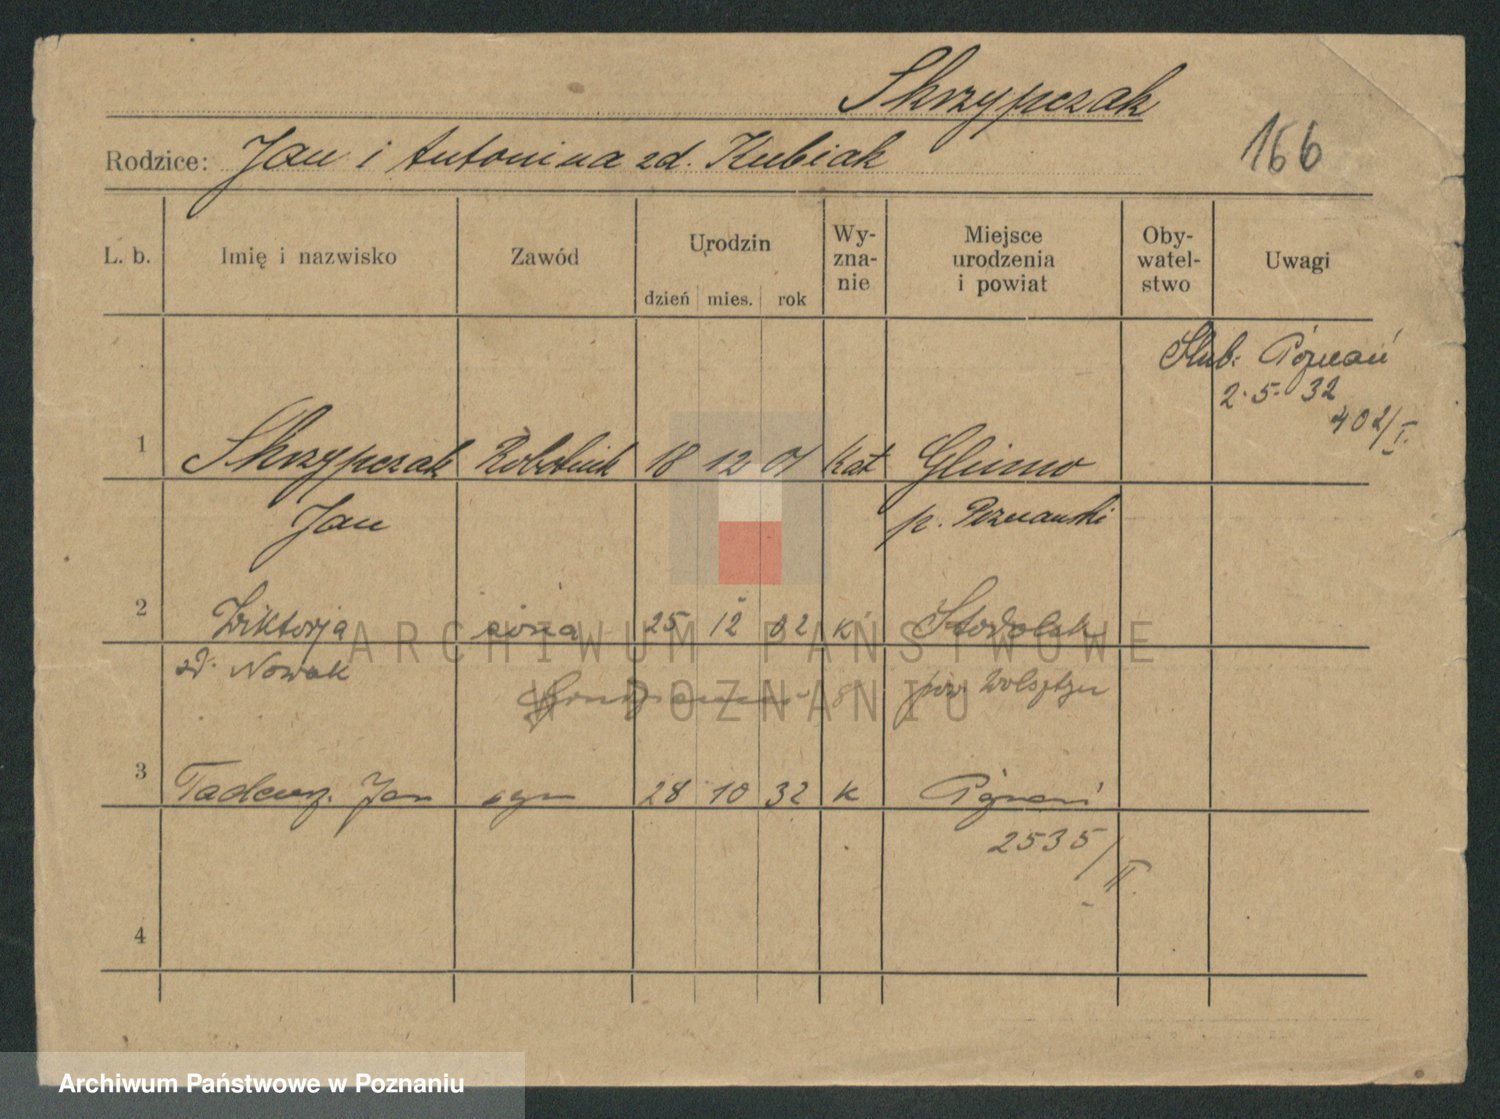 Skrzypczak
Rodzice: Jan i Antonina zd. Kubiak
166
L. b. Imię i nazwisko Zawód Urodzin dzień mies. rok Wy-zna-nie Miejsce urodzenia i powiat Oby-watel-stwo Uwagi
Ślub: Poznań
2.5.32
402/I.
1 Skrzypczak Robotnik 18 12 01 kat Glinno
Jan p. Poznański
2 Wiktorja żona 25 12 02 k Stodolsk
zd. Nowak pow. Wolsztyn
3 Tadeusz Jan syn 28 10 32 k Poznań
2535/II.
4
ARCHIWUM PAŃSTWOWE
W POZNANIU
Archiwum Państwowe w Poznaniu